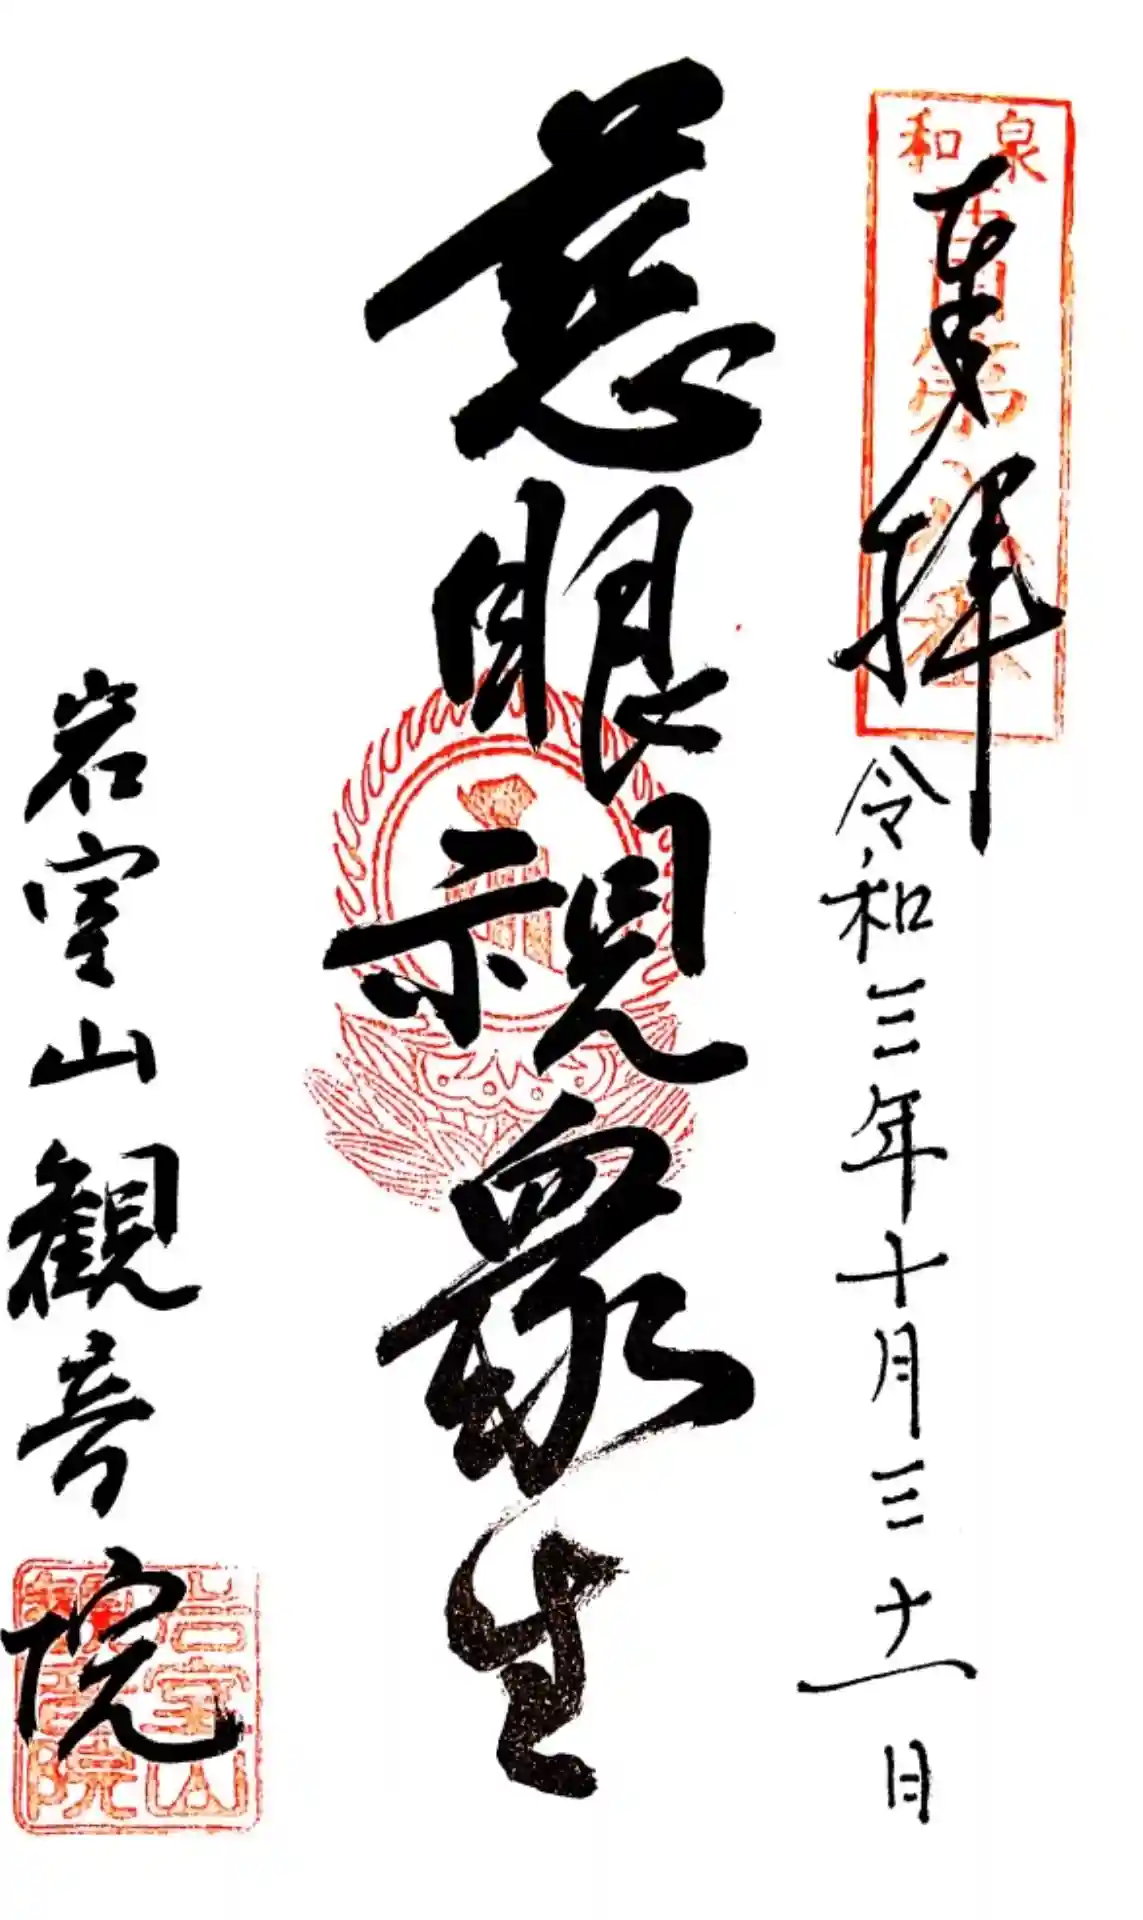 奉拝
令和三年十月三十一日
慈眼視衆生
岩室山観音院
岩室山
観音院